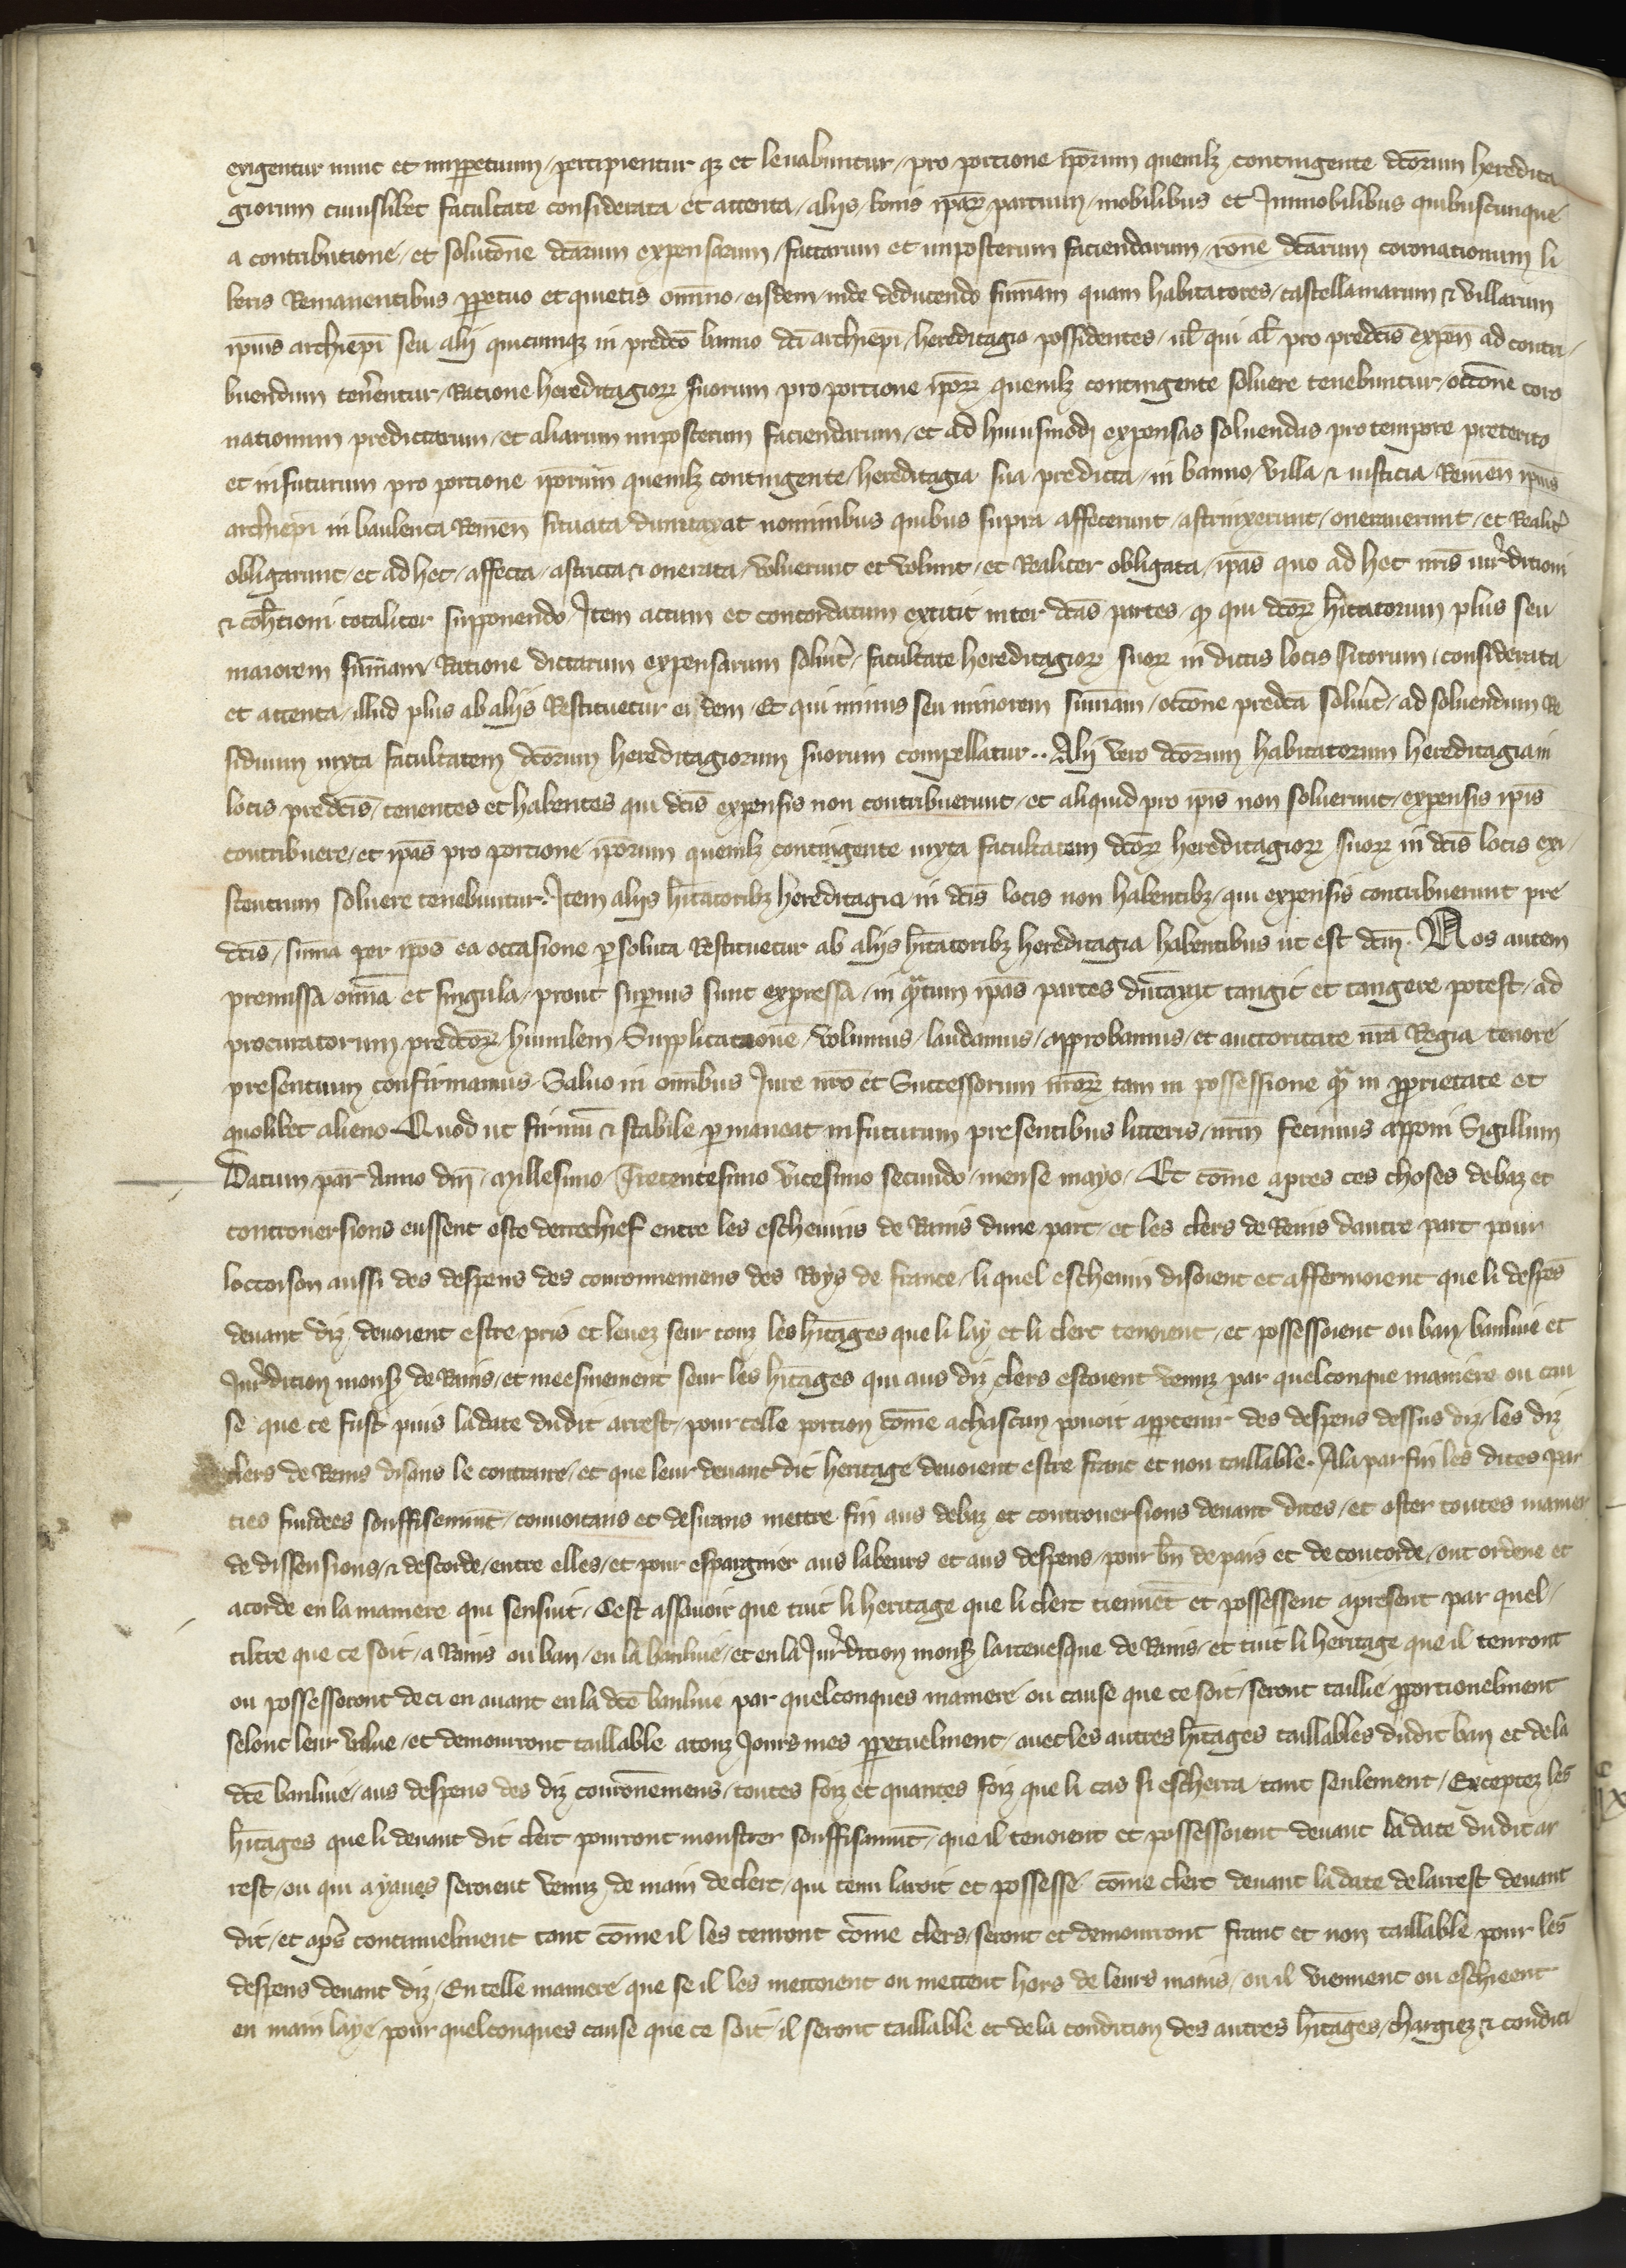 exigentur nunc et imppetuum / percipientur qz et leuabuntur / pro portione iporum quemlz contingente dcorum heredita
giorum cuiuslibet facultate considerata et attenta / alijs bonis ipar partium mobilibus et Immobilibus quibuscunque
a contributione / et solutone dcarum expensarum / factarum et imposterum faciendarum / rone dcarum coronationum li
beris Remanentibus ppetuo et quietis omino / eisdem / inde deducendo summam quam habitatores / castellaniarum & villarum
ipius archiepi seu alij quicumqz in predco banno dci archiepi / hereditagia possidentes / ul qui al pro predcis expen ad contri /
buendum tenerentur / Ratione hereditagior suorum pro portione ipor quemlz contingente soluere tenebuntur / occone coro
nationum predictarum / et aliarum imposterum faciendarum / et ad huiusmodi expensas soluendas pro tempore preterito
et infuturum pro portione iporum quemlz contingente / hereditagia sua predicta / in banno / villa & iusticia Remen ipius
archiepi in banleuca Remen situata dumtaxat nominibus quibus supra affecerunt / astrinxerunt / onerauerunt / et Realit
obligarunt / et ad hec / affecta / astricta & onerata / voluerunt et volunt / et Realiter obligata / ipas quo ad hec nris iurditioni
& cohtioni totaliter supponendo / Item actum et concordatum extitit inter dcas partes / qz qui dcor hitatorum plus seu
maiorem summam Ratione dictarum expensarum soluit / facultate hereditagior suor in dictis locis sitorum / considerata
et attenta / illud plus ab alijs Restituetur ei dem / Et qui minus seu minorem summam / occone predca soluit / ad soluendum Re
siduum iuxta facultatem dcorum hereditagiorum suorum compellatur .. Alij vero dcorum habitatorum hereditagia in
locis predcis / tenentes et habentes qui dcis expensis non contribuerunt / et aliquid pro ipis non soluerunt / expensis ipis
contribuere / et ipas pro portione iporum quemlz contingente iuxta facultatem dcor hereditagior suor in dcis locis exi /
stentium soluere tenebuntur. Item alijs hitatoribz hereditagia in dcis locis non habentibz / qui expensis contribuerunt pre
dcis / suma per ipos ea occasione psoluta Restituetur ab alijs hitatoribz hereditagia habentibus ut est dcm. Nos autem
premissa omia et singula / prout superius sunt expressa / in qtum ipas partes dutaxat tangit et tangere potest / ad
procuratorum predcor humilem / Supplicatione / volumus / laudamus / approbamus / et auctoritate nra Regia tenore
presentium confirmamus Saluo in omibus Iure nro et Successorum nror tam in possessione q in pprietate et
quolibet alieno Quod ut firmu & stabile pmaneat infuturum presentibus litteris / nrm fecimus apponi Sigillum
Datum par Anno dni Millesimo Trecentesimo vicesimo secundo / mense mayo / Et come apres ces choses debaz et
controuersions eussent este derrechief entre les escheuins de Rains dune part / et les clers de Reins dautre part pour
loccoison aussi des despens des couronnemens des Roys de france / li quel escheuin disoient et affermoient que li despes
deuant diz / deuoient estre pris et leuez seur touz les hitages que li lay et li clerc tenoient / et possessoient ou ban / banliue et
Iurdition monsr de Rains / et meesmement seur les hitages qui aus diz clers estoient venuz par quelconque maniere ou cau
se que ce fust puis ladate dudit arrest / pour telle portion come achascun pouoit appartenir des despens dessus diz / les diz
clers de Rains disans le contraire / et que leur deuant dit heritage deuoient estre franc et non taillable. Ala par fin les dites par
ties fundees souffisemint / conuoitans et desirans mettre fin aus debaz et controuersions deuant dites / et oster toutes manier
de dissensions / & descorde / entre elles / et pour espargnier aus labeurs et aus despens / pour bn de pais et de concorde / ont ordene et
acorde en la maniere qui sensuit / Cest assauoir que tuit li heritage que li clerc tiennet et possessent apresent par quel /
tiltre que ce soit / a Rains ou ban / en la banliue / et en la Iurdition monsr larceuesque de Rains / et tuit li heritage que il tenront
ou possesseront de ci en auant en la dce banliue par quelconques maniere ou cause que ce soit / seront taillie pportionelment
selonc leur value / et demourront taillable atouz Iours mes ppetuelment / auec les autres hitages taillables dudit ban et de la
dce banliue / aus despens des diz couronemens / toutes foiz et quantes foiz que li cas si escherra / tant seulement / Exceptez les
hitages que li deuant dit clerc pourront monstrer souffisamt / que il tenoient et possessoient deuant la date dudit ar
rest / ou qui a yaues seroient venuz de main de clerc / qui tenu lauoit et possesse come clerc deuant la date de larrest deuant
dit / et aps continuelment tant come il les tenront come clers / seront et demourront franc et non taillable pour les
despens deuant diz / En telle maniere que se il les mettoient ou mettent hors de leurs mains / ou il viennent ou eschieent
en main laye / pour quelconques cause que ce soit / il seront taillable et de la condition des autres hitages / chargiez & condici